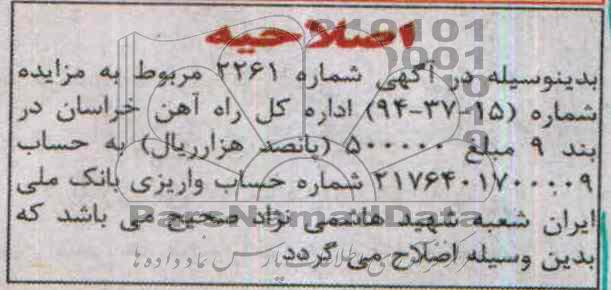 اصلاحیه
بدینوسیله در آگهی شماره ۲۲۶۱ مربوط به مزایده
شماره (۱۵-۳۷-۹۴) اداره کل راه آهن خراسان در
بند ۹ مبلغ ۵۰۰۰۰۰ (پانصد هزارریال) به حساب
۲۱۷۶۴۰۱۷۰۰۰۰۹ شماره حساب واریزی بانک ملی
ایران شعبه شهید هاشمی نژاد صحیح می باشد که
ParsNamadData
بدین وسیله اصلاح می گردد